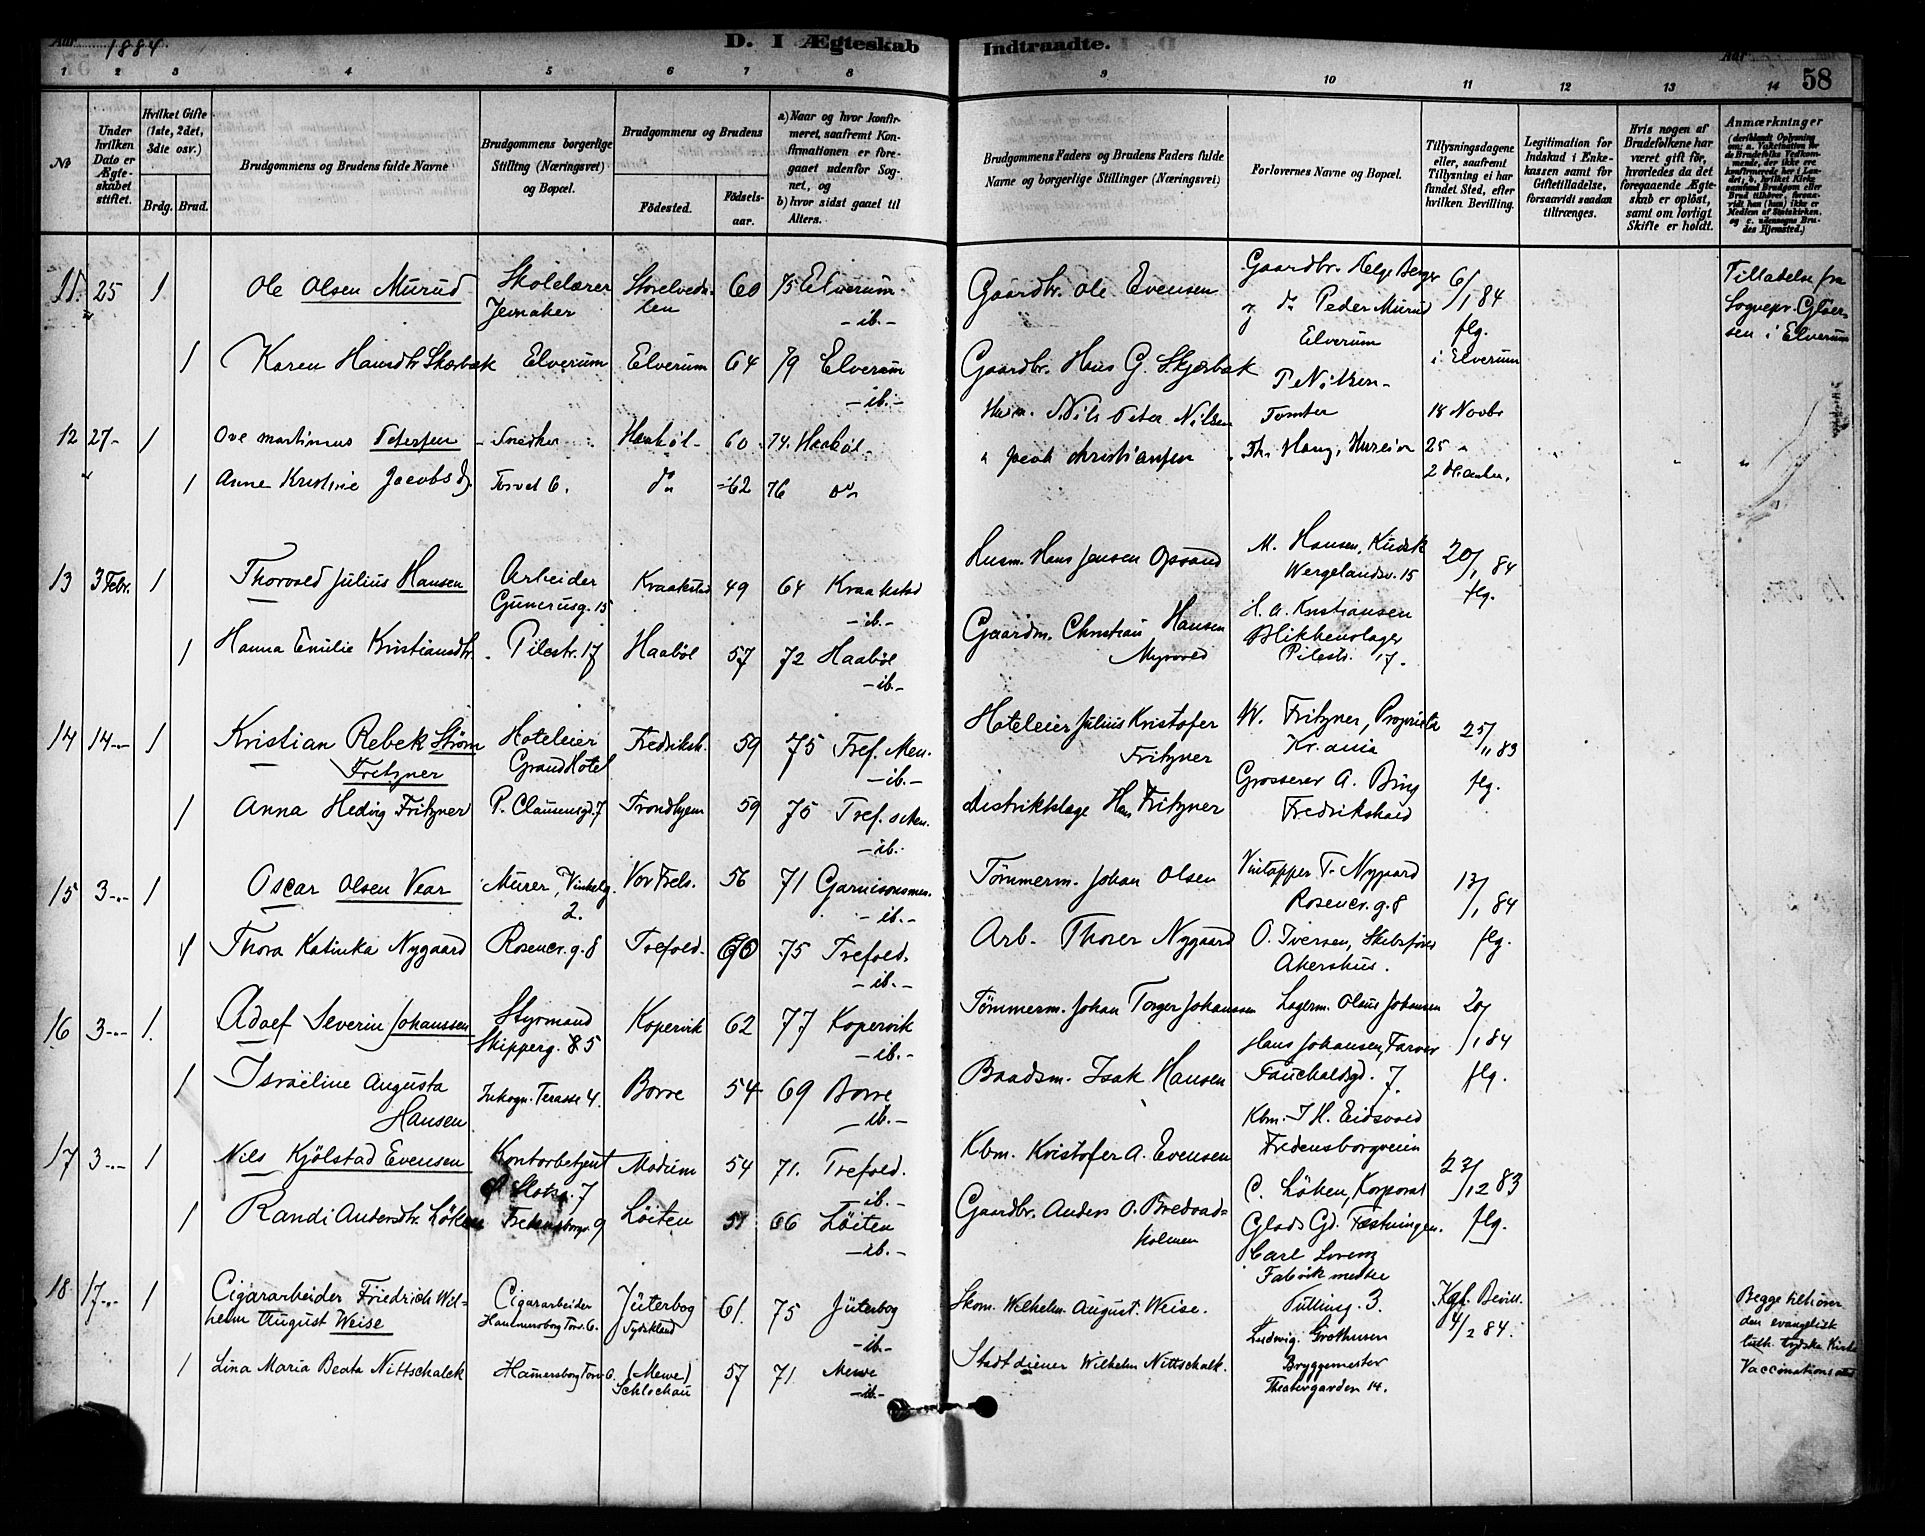 Aar 1884.
D. I Ægteskab Indtraadte.
Aar
58
1 2 3 4 5 6 7 8 9 10 11 12 13 14
No
Under hvilken Dato er Ægteskabet stiftet.
Hvilket Gifte (1ste, 2det, 3die osv.)
Brdg. Brud.
Brudgommens og Brudens fulde Navne
Brudgommens borgerlige Stilling (Næringsvei) og Bopæl.
Brudgommens og Brudens
Fødested.
Fødselsaar.
a) Naar og hvor konfirmeret, saafremt Konfirmationen er foregaaet udenfor Sognet, og
b) hvor sidst gaaet til Alters.
Brudgommens Faders og Brudens Faders fulde Navne og borgerlige Stillinger (Næringsvei)
Forlovernes Navne og Bopæl.
Tillysningsdagene eller, saafremt Tillysning ei har fundet Sted, efter hvilken Bevilling.
Legitimation for Indskud i Enkekassen samt for Giftetilladelse, forsaavidt saadan tiltrænges.
Hvis nogen af Brudefolkene har været gift før, hvorledes da det foregaaende Ægteskab er opløst, samt om lovligt Skifte er holdt.
Anmærkninger
(deriblandt Oplysning om: a. Vakcination for de Brudefolks Vedkommende, der ikke ere konfirmerede her i Landet; b. hvilket Kirkesamfund Brudgom eller Brud tilhører, forsaavidt han (hun) ikke er Medlem af Statskirken, og c. udensogns Brudes Hjemsted.)
11. 25 1 Ole Olsen Murud Skolelærer Jevnaker Storelvedalen 60 75 Elverum -ib.- Gaardbr. Ole Evensen Gaardbr. Helge Berger og do Peder Murud Elverum 6/1 84 flg. i Elverum Tilladelse fra Sognepr. Gløersen i Elverum
1 Karen Hansdtr Skærbak Elverum Elverum 64 79 Elverum -ib.- Gaardbr. Hans G. Skjærbak
12 27- 1 Ove Martinus Petersen Snedker Haabøl 60 74. Haabøl Husm. Nils Peter Nilsen P. Nilsen - Tomter 18 Novbr
1 Anne Kristine Jacobsd. Torvet 6. do 62 76 do " Jacob Christiansen 25 " 2
13 3 Febr. 1 Thorvald Julius Hansen Arbeider Gunerusg. 15 Kraakstad 49 64 Kraakstad -ib.- Husm. Hans Jensen Opsand M. Hansen, Kudsk Wergelandsv. 15 20/1 84 flg.
1 Hanna Emilie Kristiansdtr. Pilestr. 17 Haabøl 57 72 Haabøl -ib.- Gaardm. Christian Hansen Myrvold H. A. Kristiansen Blikkenslager Pilestr. 17.
14 14-- 1 Kristian Rebek Strøm Fritzner Hoteleier Grand Hotel Fredriksh. 59 75 Tref. Men. -ib.- Hoteleier Julius Kristofer Fritzner W. Fritzner, Proprietær Kr.ania 25/11 83 flg.
1 Anna Hedvig Fritzner P. Clausensgd. 7 Trondhjem 59 75 Tref. Men. -ib.- Distriktslæge Hans Fritzner Grosserer A. Bing Fredrikshald
15 3-- 1 Oscar Olsen Vear Murer, Vinkelg. 2. Vor Frels. 56 71 Garnisonsmen. -ib.- Tømmerm. Johan Olsen Vintapper T. Nygaard Rosencr. g. 8 13/1 84 flg.
1 Thora Katinka Nygaard Rosencr. g. 8 Trefold. 60 75 Trefold. -ib.- Arb. Thorer Nygaard O. Iversen, Skibsfører Akershus.
16 3-- 1. Adolf Severin Johanssen Styrmand Skipperg. 85 Kopervik 62 77 Kopervik -ib.- Tømmerm. Johan Torger Johanssen Lagerm. Olaus Johansen 20/1 84 flg.
1 Israeline Augusta Hansen Inkogn. Terasse 4. Borre 54 69 Borre -ib.- Baadsm. Isak Hansen Hans Johansen, Farver Fauchaldsgd. 7.
17 3-- 1 Nils Kjølstad Evensen Kontorbetjent Slotsg. 7 Modum 54 71. Trefold. -ib.- Kbm. Kristofer A. Evensen Kbm. I H. Eidsvold Fredensborgveien 23/12 83 flg.
1 Randi Andersdtr. Løken Fredensborgv. 9 Løiten 51 66 Løiten -ib.- Gaardbr. Anders O. Bredvadholmen C. Løken, Korporal Glads Gd. Fæstningen.
18. 17-- 1 Cigararbeider Friedrich Wilhelm August Weise Cigararbeider Hammersborg Torv 6. Jüterbog Tydskland 61. 75 Jüterbog -ib.- Skom. Wilhelm August Weise. Carl Lorenz Fabrikmester Pullinsg. 3. Kgl. Bevill. 4/2 84. Begge tilhører den evangelisk luth. tydske Kirke Vaccinationsatt
1 Lina Maria Beata Nittschalck Hamersborg Torv 6. (Mewe) Schlochau 57 71. Mewe -ib.- Stadtdiener Wilhelm Nittschalk. Ludwig Grothusen Bryggemester Theatergarden 14.